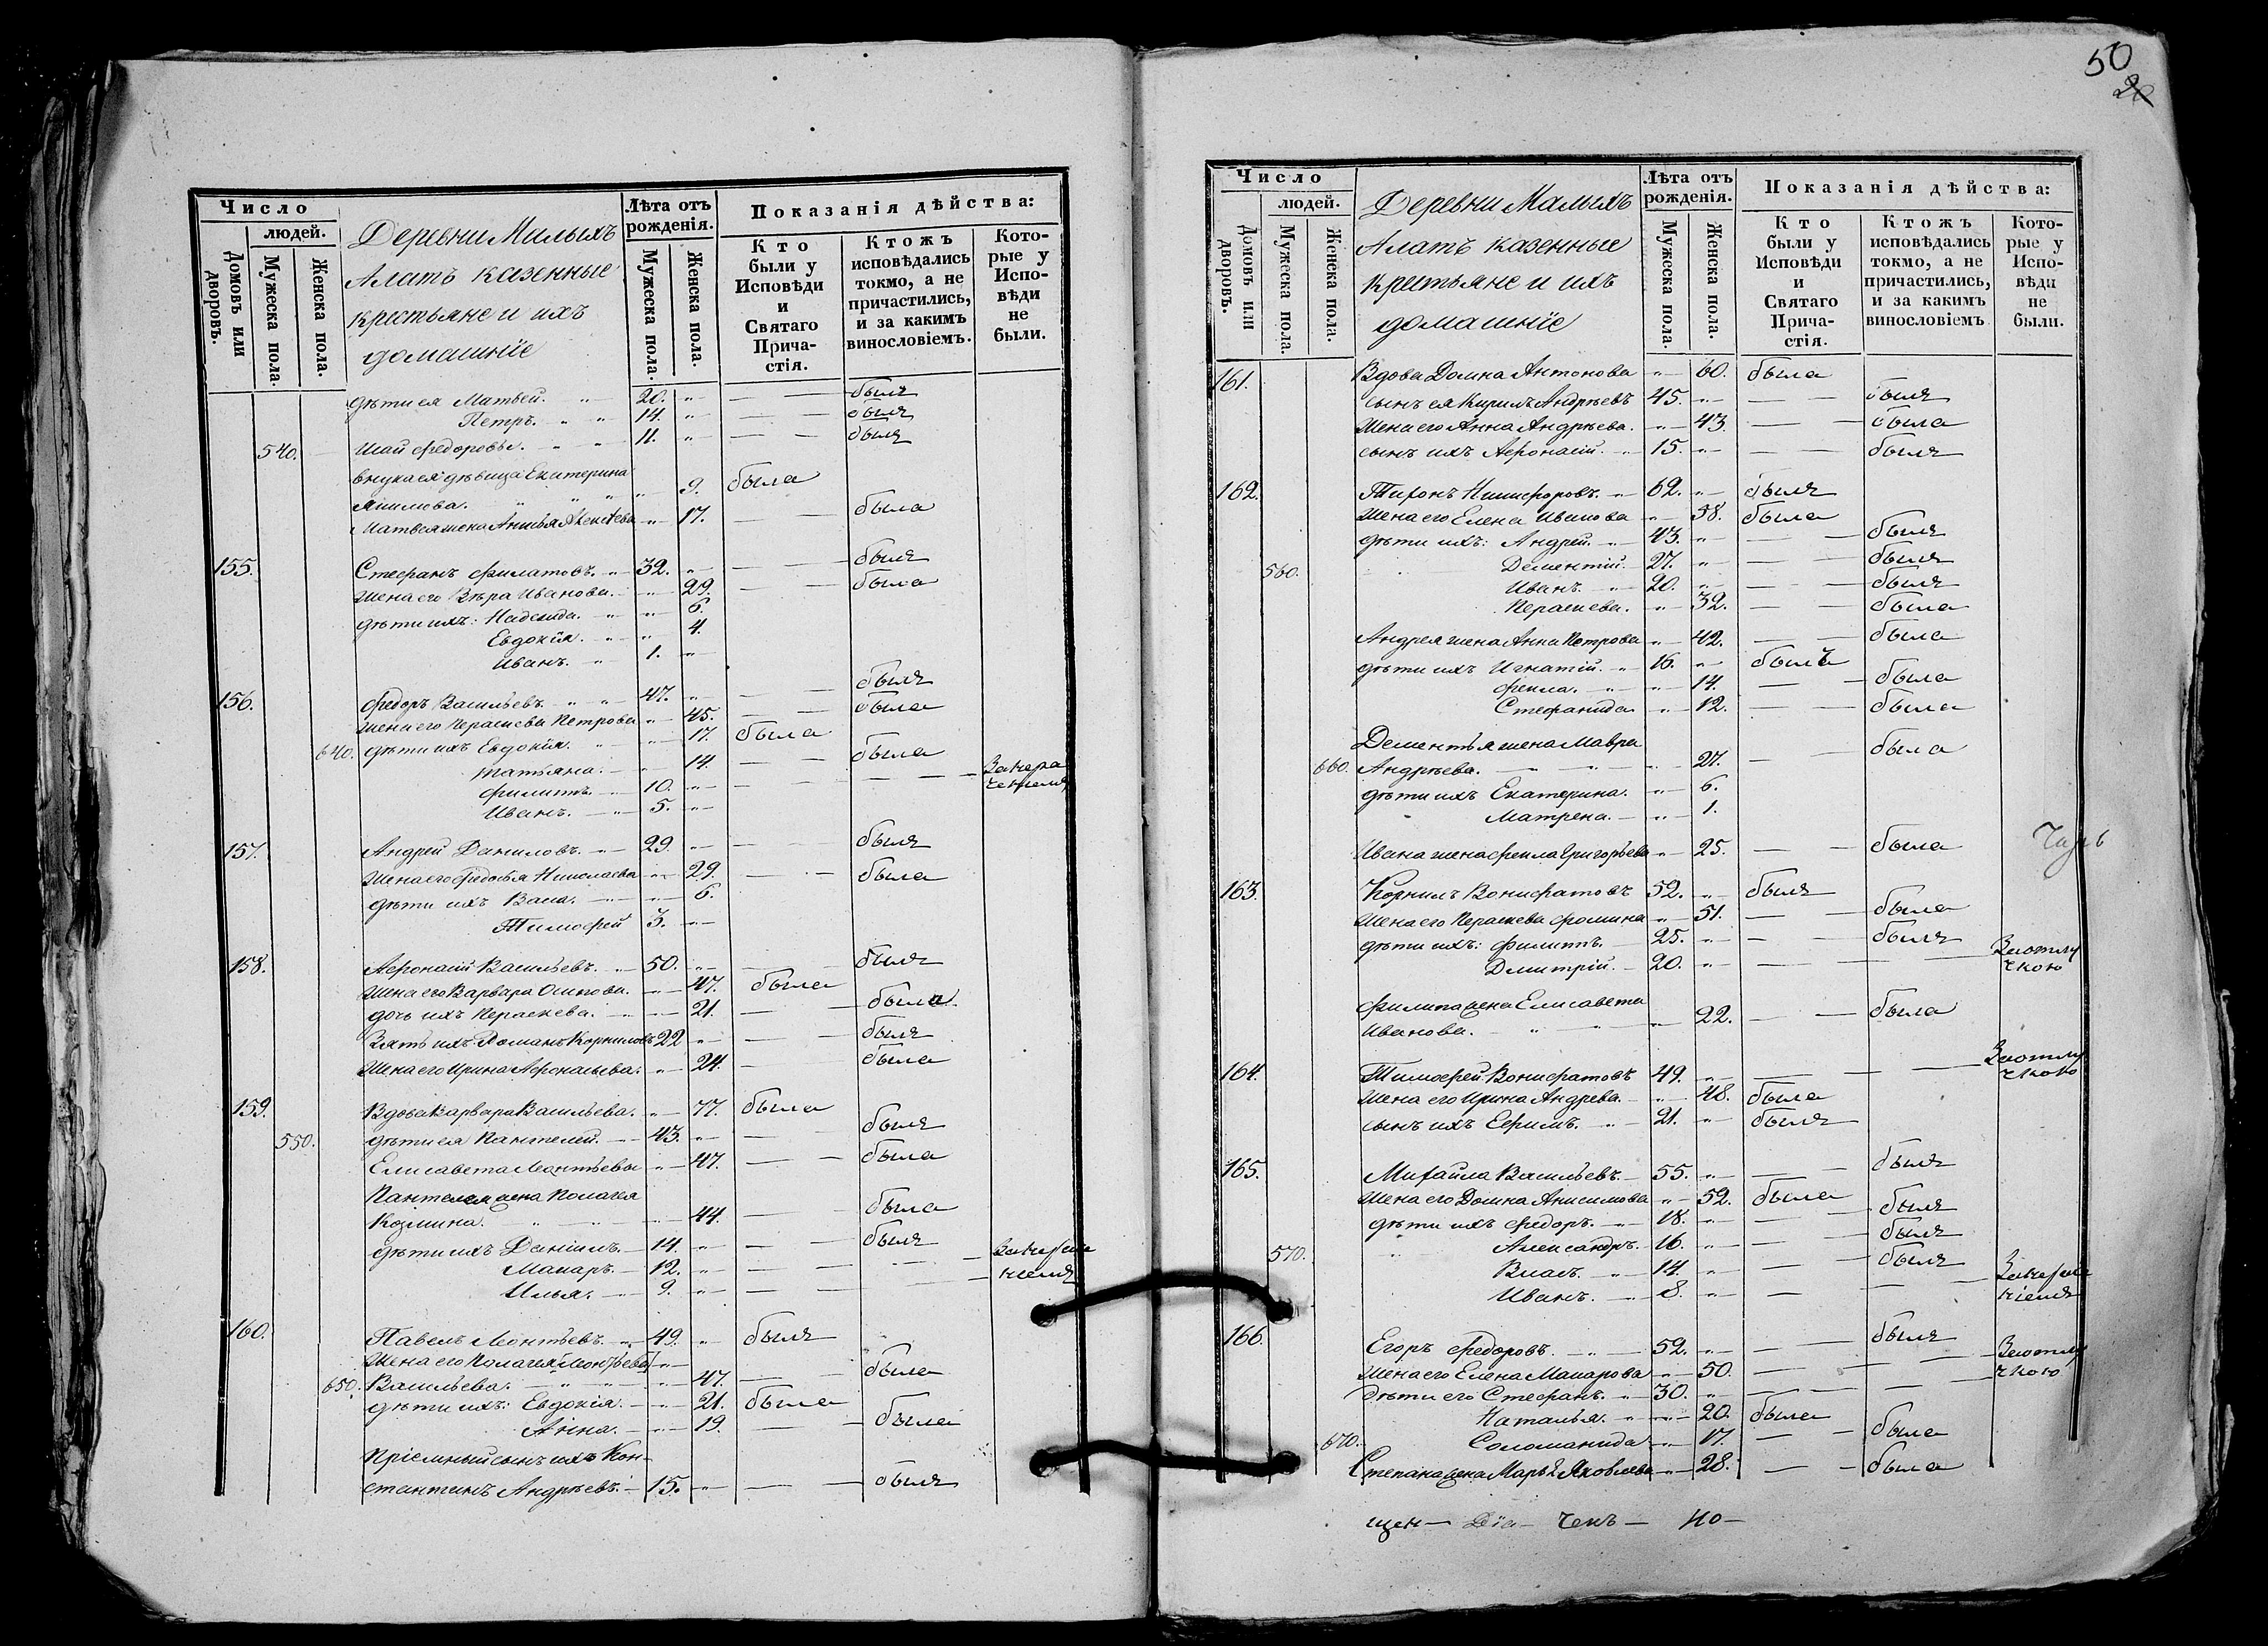 Число
людей.
Домовъ или дворовъ.
Мужеска пола.
Женска пола.
Деревни Малыхъ
Алатъ казенные
крестьяне и ихъ
домашніе
Лѣта отъ рожденія.
Мужеска пола.
Женска пола.
Показанія дѣйства:
Кто были у Исповѣди и Святаго Прича-стія.
Ктожъ исповѣдались токмо, а не причастились, и за какимъ винословіемъ.
Кото-рые у Испо-вѣди не были.
дѣти ея Матвей. 20. былъ
Петръ. 14. былъ
540. Федоровы. 11. былъ
внука ея дѣвица Екатерина
9. была
Матвея жена Алексѣева 17. была
155. Стефанъ Филатовъ. 32. былъ
Жена его Вѣра Иванова. 29. была
дѣти ихъ: Надежда. 6.
Евдокія. 4.
Иванъ. 1.
156. Федоръ Васильевъ. 47. былъ
Жена его Параскева Петрова 45. была
640. дѣти ихъ Евдокія. 17. была
Татьяна. 14. была
Филиппъ. 10.
Иванъ. 5.
157. Андрей Даниловъ. 29. былъ
Жена его Федосья Николаева 29. была
дѣти ихъ Васа. 6.
Тимофей 3.
158. Афонасій Васильевъ. 50. былъ
Жена его Варвара Осипова. 47. была
дочь ихъ Параскева. 21. была
Зять ихъ Романъ Корниловъ 22 былъ
Жена его Ирина Афонасьева. 24. была
159. Вдова Варвара Васильева. 77. была
550. дѣти ея Пантелей. 43. былъ
Елисавета Леонтьевы 47. была
Пантелея жена Пелагея
Козмина. 44. была
дѣти ихъ Даніилъ. 14. былъ
Макаръ. 12.
Илья. 9.
160. Павелъ Леонтьевъ. 49. былъ
Жена его Пелагея [Леонтьева]
650. Васильева. 47. была
дѣти ихъ: Евдокія. 21. была
Анна. 19. была
Пріемный сынъ ихъ Кон-
стантинъ Андрѣевъ. 15. былъ
50
Число
людей.
Домовъ или дворовъ.
Мужеска пола.
Женска пола.
Деревни Малыхъ
Алатъ казенные
крестьяне и ихъ
домашніе
Лѣта отъ рожденія.
Мужеска пола.
Женска пола.
Показанія дѣйства:
Кто были у Исповѣди и Святаго Прича-стія.
Ктожъ исповѣдались токмо, а не причастились, и за какимъ винословіемъ
Кото-рые у Испо-вѣди не были.
161. Вдова Домна Антонова 60. была
сынъ ея Кирилъ Андрѣевъ 45. былъ
Жена его Анна Андрѣева. 43. была
сынъ ихъ Афонасій. 15. былъ
162. Тихонъ Никифоровъ. 62. былъ
Жена его Елена Иванова 58. была
дѣти ихъ: Андрей. 43. былъ
560. Дементій. 27. былъ
Иванъ. 20. былъ
Параскева. 32. была
Андрея жена Анна Петрова 42. была
дѣти ихъ Игнатій. 16. былъ
Фекла. 14. была
Стефанида 12. была
Дементья жена Мавра
660. Андрѣева. 27. была
дѣти ихъ Екатерина. 6.
Матрена. 1.
Ивана жена Фекла Григорьева 25. была
163. Корнилъ Вонифатовъ 52. былъ
Жена его Параскева Фомина 51. была
дѣти ихъ: Филиппъ. 25. былъ
Дмитрій. 20. За отлучкою
Филипа жена Елисавета
Иванова. 22. была
164. Тимофей Вонифатовъ 49. За отлучкою
Жена его Ирина Андрева. 48. была
сынъ ихъ Ефимъ. 21. былъ
165. Михайла Васильевъ. 55. былъ
Жена его Домна Анисимова 52. была
дѣти ихъ Федоръ. 18. былъ
570. Александръ. 16. былъ
Власъ. 14. былъ
Иванъ. 8.
166. Егоръ Федоровъ. 52. былъ
Жена его Елена Макарова 50. За отлучкою
дѣти его Стефанъ. 30.
Наталья. 20. была
670. Соломанида 17. была
Степана жена Марья Яковлева 28. была
щен— Діа— чекъ— 40—